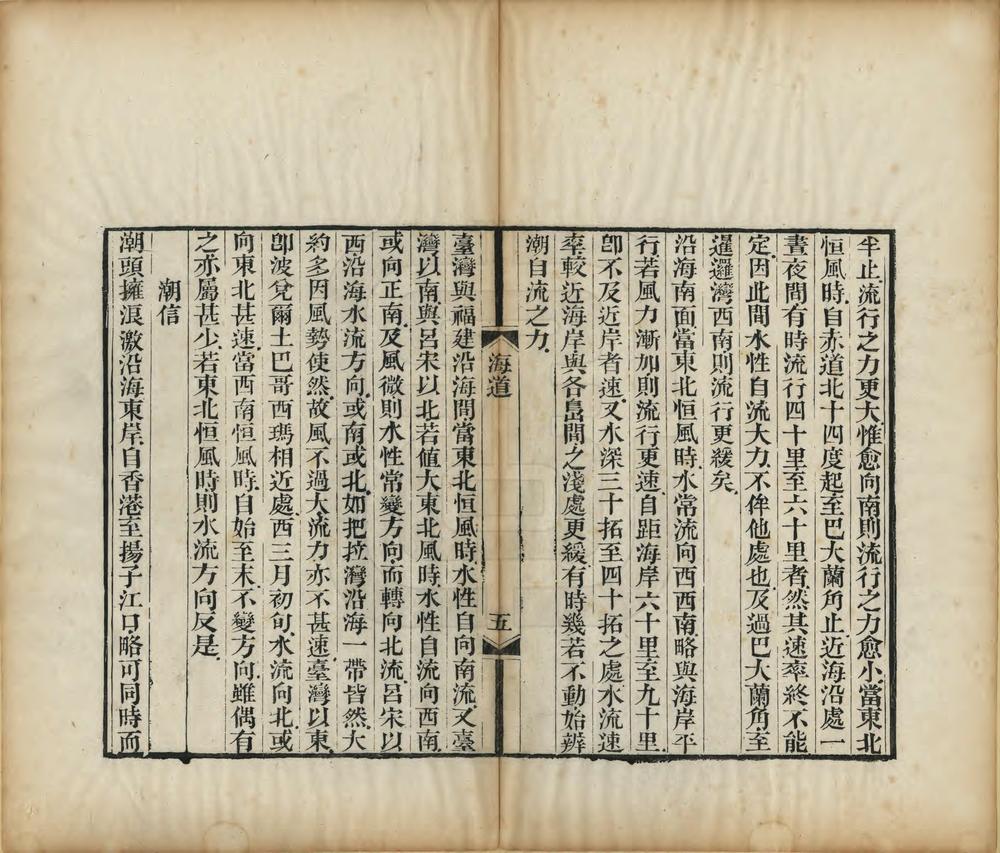 半止流行之力更大惟愈向南則流行之力愈小當東北
恒風時自赤道北十四度起至巴大蘭角止近海沿處一
晝夜間有時流行四十里至六十里者然其速率終不能
定因此間水性自流大力不侔他處也及過巴大蘭角至
暹邏灣西南則流行更緩矣
沿海南面當東北恒風時水常流向西西南略與海岸平
行若風力漸加則流行更速自距海岸六十里至九十里
卽不及近岸者速又水深三十拓至四十拓之處水流速
率較近海岸與各島間之淺處更緩有時幾若不動始辨
潮自流之力
海道
五
臺灣與福建沿海間當東北恒風時水性自向南流又臺
灣以南與呂宋以北若值大東北風時水性自流向西南
或向正南及風微則水性常變方向而轉向北流呂宋以
西沿海水流方向或南或北如把拉灣沿海一帶皆然大
約多因風勢使然故風不過大流力亦不甚速臺灣以東
卽波兌爾土巴哥西瑪相近處西三月初旬水流向北或
向東北甚速當西南恒風時自始至末不變方向雖偶有
之亦屬甚少若東北恒風時則水流方向反是
潮信
潮頭擁浪激沿海東岸自香港至揚子江口略可同時而